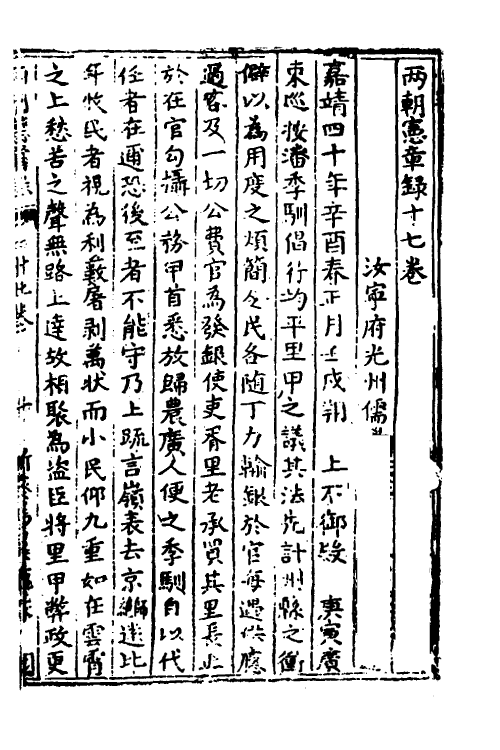 两朝憲章録十七卷
汝寧府光州儒
嘉靖四十年辛酉春正月壬戌朔　上不御殿　庚寅廣
東巡按潘季馴倡行均平里甲之議其法先計州縣之衝
僻以為用度之煩簡令民各随丁力輸銀於官每遇供應
過客及一切公費官為發銀使吏胥里老承買其里長止
於在官勾攝公務甲首悉放歸農廣人便之季馴自以代
任者在邇恐後至者不能守乃上疏言嶺表去京師遥比
年牧民者視為利藪屠剥萬状而小民仰九重如在雲霄
之上愁苦之聲無路上達故相聚為盗臣將里甲弊政更